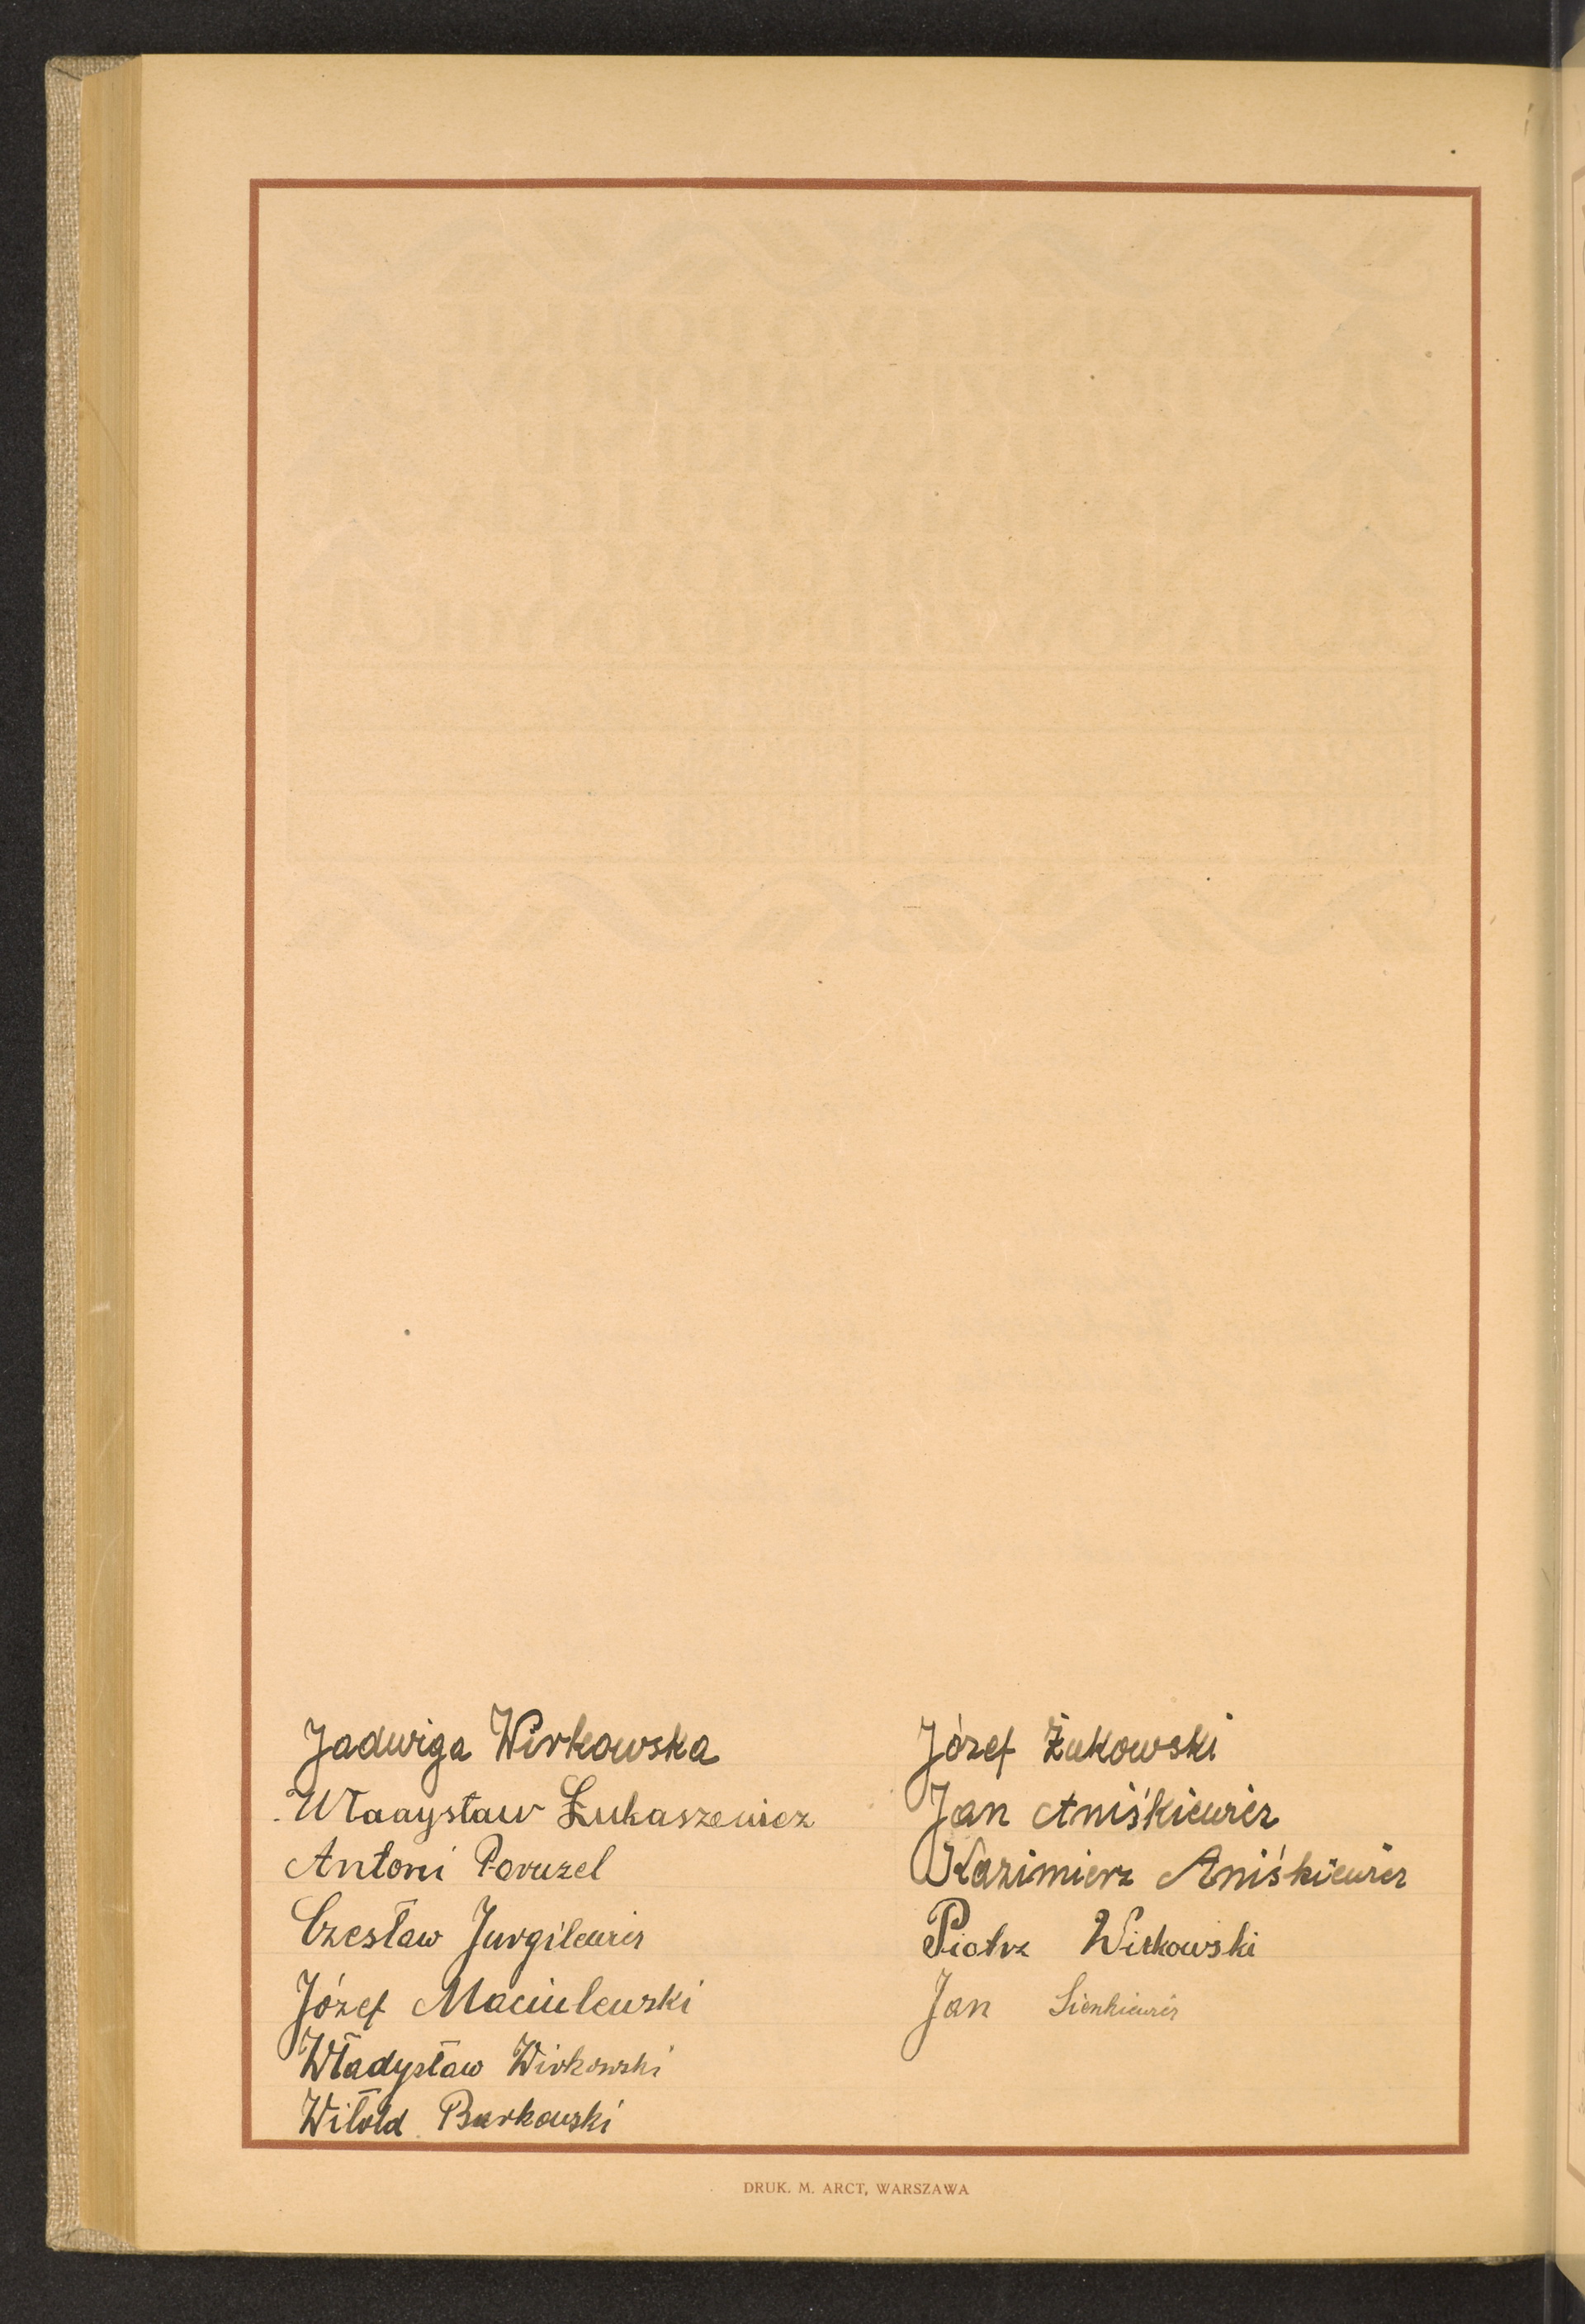 Jadwiga Wirkowska
Władysław Łukaszewicz
Antoni Powuzel
Czesław Jurgilewicz
Józef Maciulewski
Władysław Wirkowski
Witold Burkowski
Józef Żukowski
Jan Aniśkiewicz
Kazimierz Aniśkiewicz
Piotrz Wirkowski
Jan Sienkiewicz
DRUK. M. ARCT, WARSZAWA